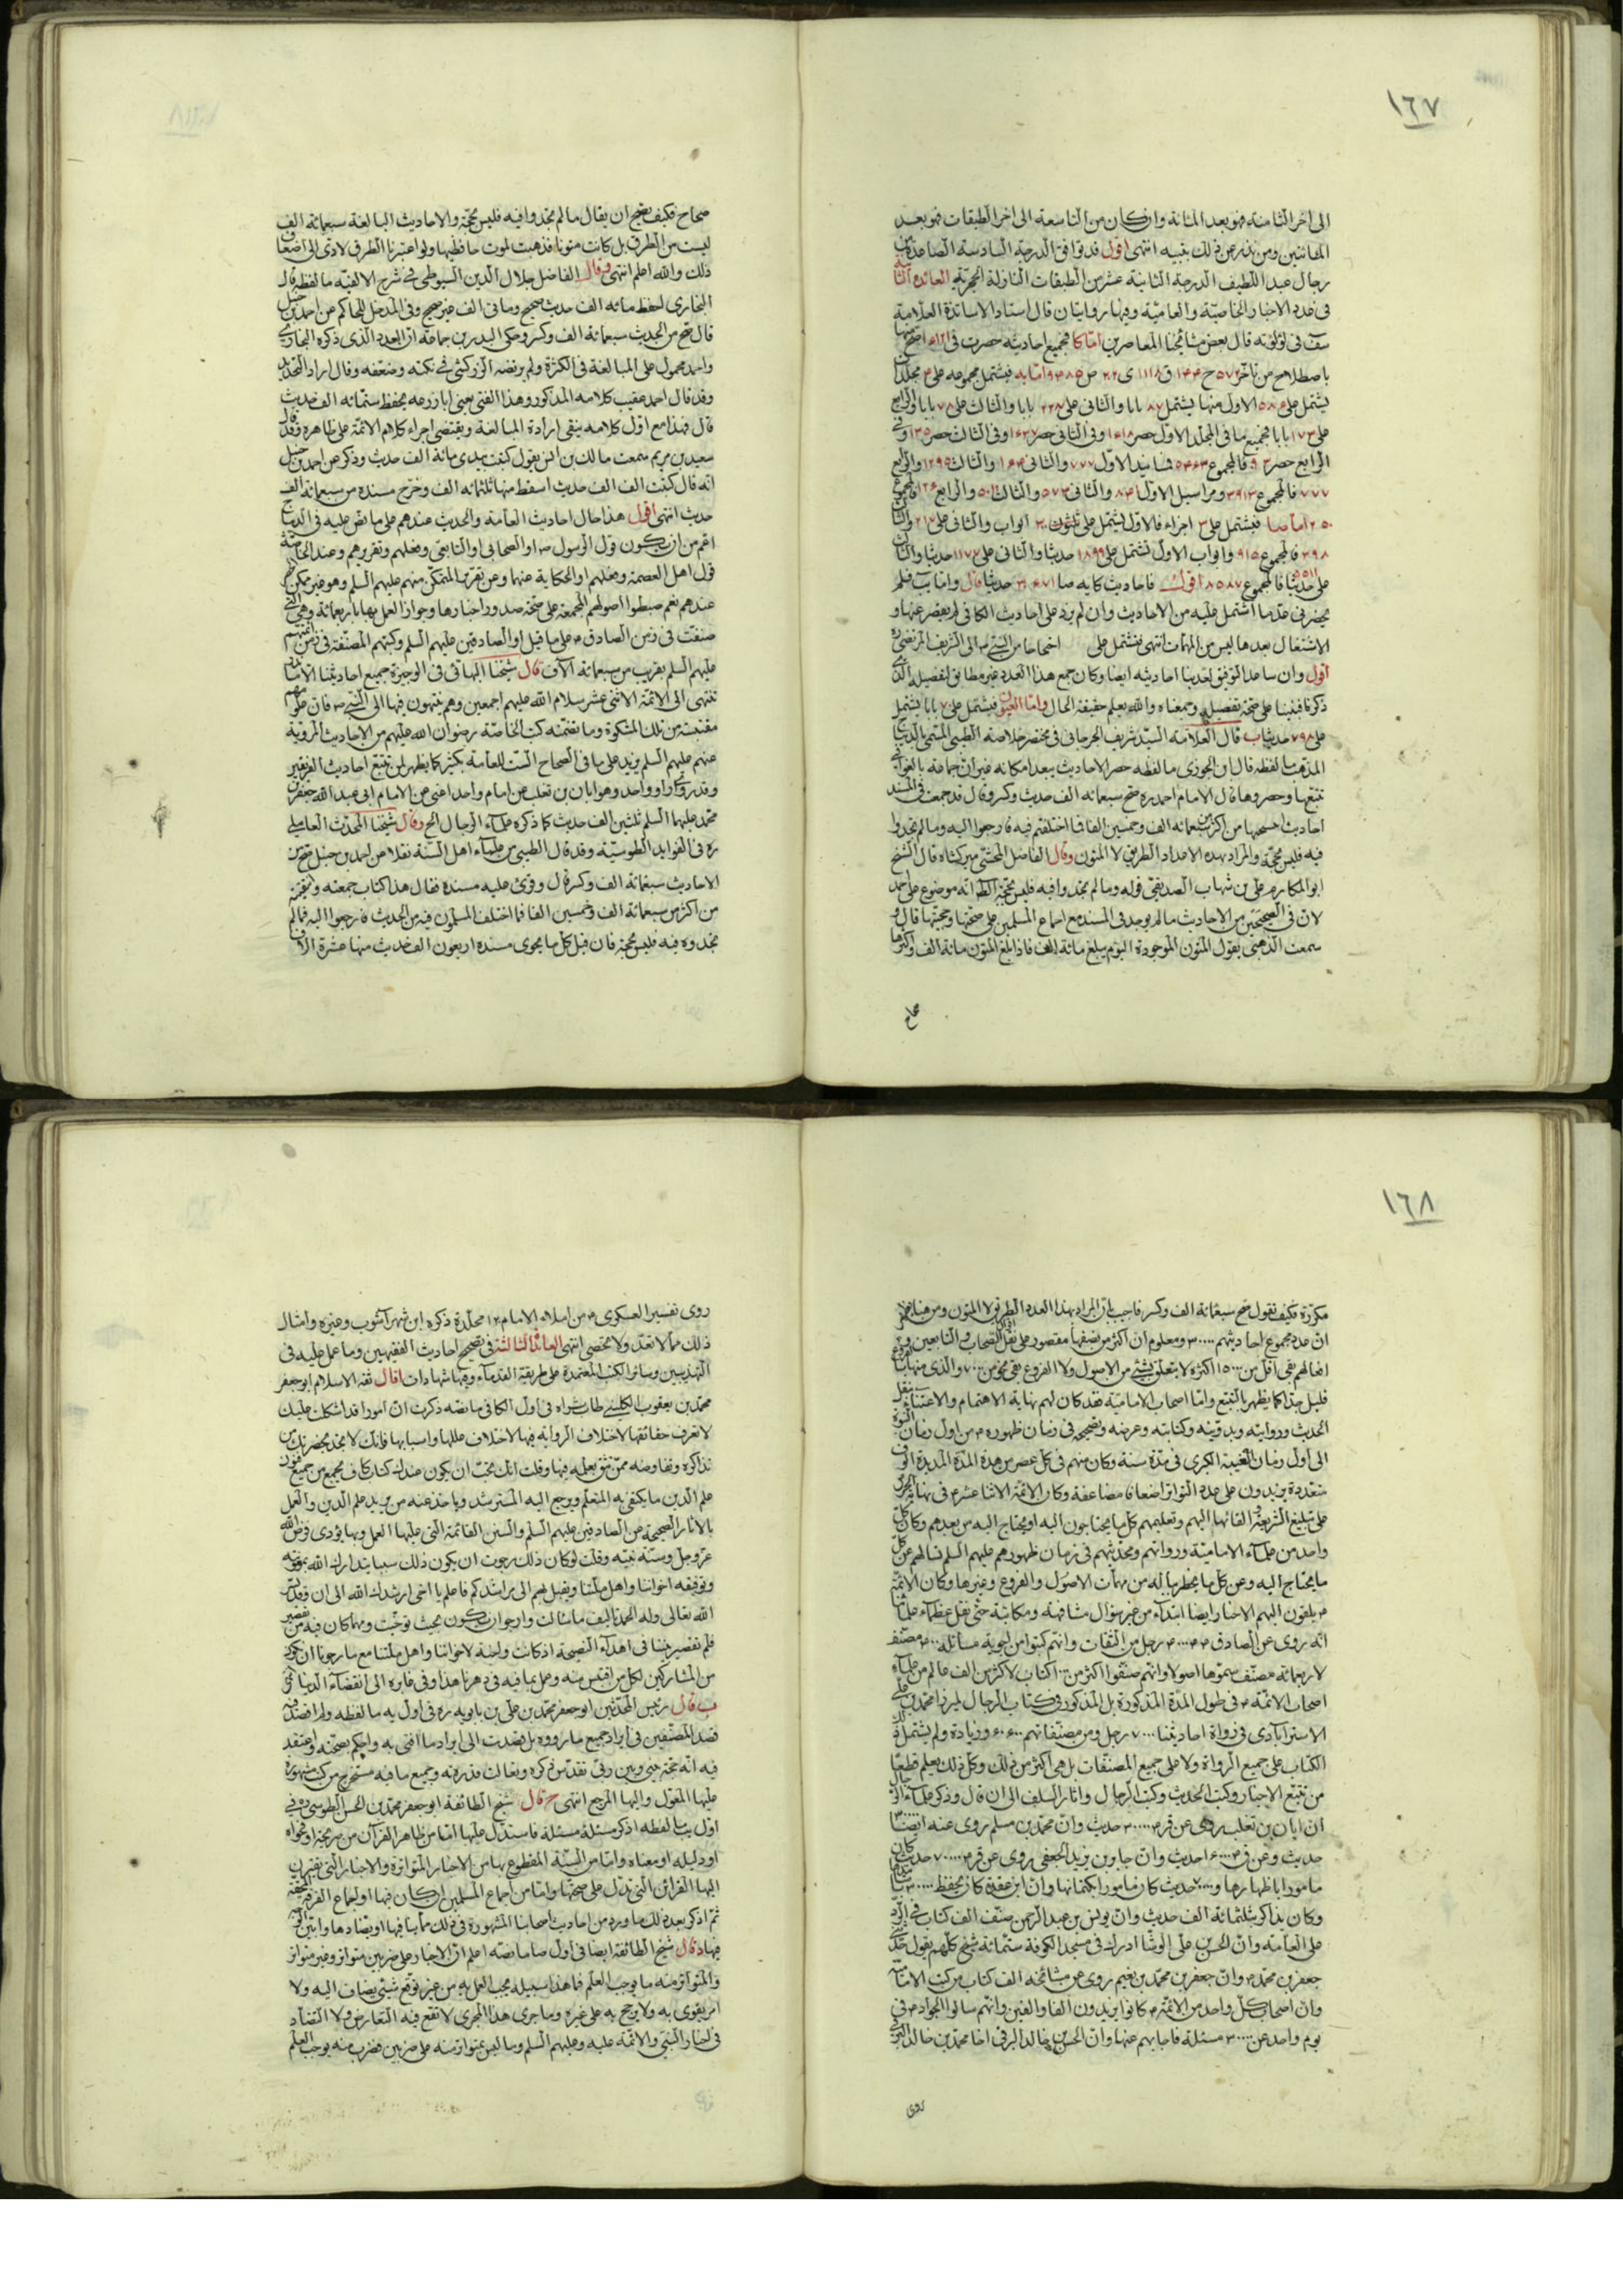 ١٦٧
الى اخر الثامنة فهو بعد المائة وان كان من التاسعة الى اخر الطبقات فهو بعد
المائتين ومن ندر عن ذلك بينته انتهى اقول قد توافق الدرجة السادسة الصاعدة من
رجال عبد اللطيف الدرجة الثانية عشر من الطبقات النازلة الحجرية العائدة الثانية
فى عدد الاخبار الخاصية والعامية وفيها روايتان قال استاد الاساتدة العلامة
فى لؤلؤته قال بعض مشايخنا المعاصرين اما كا فجميع احاديثه حصرت فى
باصطلاح من تاخر
يشتمل على الاول منها يشتمل بابا والثانى على بابا والثالث على بابا والرابع
على بابا فجميع ما فى المجلد الاول حصر وفى الثانى حصر وفى الثالث حصر وفى
الرابع حصر فالمجموع فمسانيد الاول ٧٧٧ والثانى والثالث والرابع
٧٧٧ فالمجموع ومراسيل الاول والثانى ٥٧٣ والثالث والرابع فالمجموع
٢٠٥٠ اما صا فيشتمل على اجزاء فالاول يشتمل على ثلثون ابواب والثانى على والثالث
٣٩٨ فالمجموع ٩١٥ وابواب الاول تشتمل على ١٨٩٩ حديثا والثانى على ١١٧٧ حديثا والثالث
على حديثا فالمجموع اقول فاحاديث كتابه صا حديثا قال واما يب فلم
يحضرنى عد ما اشتمل عليه من الاحاديث وان لم يزد على احاديث الكافى لم يقصر عنها و
الاشتغال بعدها ليس من المهمات انتهى
اقول وان ساعد التوفيق لعددنا احاديثه ايضا وكان جمع هذا العدد غير مطابق لتفصيله الذى
ذكر فبنينا على صحة تفصيله وجمعناه والله يعلم حقيقة الحال واما العيون فيشتمل على بابا يشتمل
على حديثا ب قال العلامة السيد شريف الجرجانى فى مختصر خلاصة الطيبى المسمى بالديباج
المذهب ما لفظه قال ابن الجوزى ما لفظه حصر الاحاديث يبعد امكانه غير ان جماعة بالغوا فى
تتبعها وحصروها قال الامام احمد ره صح سبعمائة الف حديث وكسر وقال قد جمعت فى المسند
احاديث انتخبتها من اكثر من سبعمائة الف وخمسين الفا فما اختلفتم فيه فارجعوا اليه وما لم تجدوا
فيه فليس بحجة والمراد بهذه الاعداد الطرق لا المتون وقال الفاضل المحشى ميركشاه قال الشيخ
ابو المكارم على بن شهاب الصديقى قوله وما لم تجدوا فيه فليس بحجة الظ انه موضوع على احمد
لان فى الصحيحين من الاحاديث ما لم يوجد فى المسند مع اجماع المسلمين على صحتها وحجيتها قال و
سمعت الذهبى يقول المتون الموجودة اليوم يبلغ مائة الف فاذا بلغ المتون مائة الف واكثرها
صحاح
صحاح فكيف يصح ان يقال ما لم تجدوا فيه فليس بحجة والاحاديث البالغة سبعمائة الف
ليست من الطرق بل كانت متونا فذهبت لموت حافظيها ولو اعتبرنا الطرق لادى الى اضعاف
ذلك والله اعلم انتهى وقال الفاضل جلال الدين السيوطى فى شرح الالفية ما لفظه قال
البخارى احفظ مائة الف حديث صحيح ومائتى الف غير صحيح وفى المدخل للحاكم عن احمد بن حنبل
قال صح من الحديث سبعمائة الف وكسر وحكى البدر بن جماعة ان العدد الذى ذكره البخارى
واحمد محمول على المبالغة فى الكثرة ولم يرتضه الزركشى فى نكته وضعفه وقال اراد التحديد
وقد قال احمد عقيب كلامه المذكور وهذا الفتى يعنى ابا زرعة يحفظ ستمائة الف حديث
قال فهذا مع اول كلامه ينفى ارادة المبالغة ويقتضى اجراء كلام الائمة على ظاهره وقد قال
سعيد بن مريم سمعت مالك بن انس يقول كتبت بيدى مائة الف حديث وذكر عن احمد بن حنبل
انه قال كتبت الف الف حديث اسقط منها ثلثمائة الف وخرج مسنده من سبعمائة الف
حديث انتهى اقول هذا حال احاديث العامة والحديث عندهم على ما نص عليه فى الديباج
اعم من ان يكون قول الرسول ص او الصحابى او التابعى وفعلهم وتقريرهم وعند الخاصة
قول اهل العصمة وفعلهم او الحكاية عنهما وعن تقرير المتمكن منهم عليهم السلم وهو غير
عندهم نعم ضبطوا اصولهم المجمعة على صحة صدور اخبارها وجواز العمل بها باربعمائة وهى التى
صنفت فى زمن الصادق ع على ما قيل او الصادقين عليهم السلم وكتبهم المصنفة فى زمن ائمتهم
عليهم السلم بقريب من سبعمائة آلاف قال شيخنا البهائى فى الوجيزة جميع احاديثنا الا ما ندر
تنتهى الى الائمة الاثنى عشر سلام الله عليهم اجمعين وهم ينتهون فيها الى النبى ص فان علومهم
مقتبسة من تلك المشكوة وما تضمنته كتب الخاصة رضوان الله عليهم من الاحاديث المروية
عنهم عليهم السلم يزيد على ما فى الصحاح الست للعامة بكثير كما يظهر لمن تتبع احاديث الفريقين
وقد روى راو واحد وهو ابان بن تغلب عن امام واحد اعنى عن الامام ابى عبد الله جعفر بن
محمد عليهما السلم ثلثين الف حديث كما ذكره علماء الرجال الخ وقال شيخنا المحدث العاملى
ره فى الفوايد الطوسية وقد قال الطيبى من علماء اهل السنة نقلا عن احمد بن حنبل صح من
الاحاديث سبعمائة الف وكسر قال وقرئ عليه مسنده فقال هذا كتاب جمعته وانتقيته
من اكثر من سبعمائة الف وخمسين الفا فما اختلف المسلمون فيه من الحديث فارجعوا اليه فما لم
تجدوه فيه فليس بحجة فان قيل كل ما يحوى مسنده اربعون الف حديث منها عشرة الاف
١٦٨
مكررة فكيف تقول صح سبعمائة الف وكسر فاجيب بان المراد بهذا العدد الطرق لا المتون ومن هنا يظهر
ان عدد مجموع احاديثهم ٣٠٠٠٠ ومعلوم ان اكثر من نصفها مقصور على نقل الصحاب والتابعين و
افعالهم بقى اقل من ١٥٠٠٠ اكثره لا يتعلق بشئ من الاصول ولا الفروع بقى نحو من ٧٠٠٠ والذى منها
قليل جدا كما يظهر بالتتبع واما اصحاب الامامية فقد كان لهم نهاية الاهتمام والاعتناء بنقل
الحديث وروايته وتدوينه وكتابته وعرضه وتصحيحه فى زمان ظهوره ع من اول زمان
الى اول زمان الغيبة الكبرى فى مدة سنة وكان منهم فى كل عصر من هذه المدة المديدة الوف
متعددة يزيدون على عدد التواتر اضعافا مضاعفة وكان الائمة الاثنا عشر ع فى نهاية الحرص
على تبليغ الشريعة والقائها اليهم وتعليمهم كل ما يحتاجون اليه او يحتاج اليه من بعدهم وكان كل
واحد من علماء الامامية ورواتهم ومحدثيهم فى زمان ظهورهم عليهم السلم تسالهم عن كل
ما يحتاج اليه وعن كل ما يخطر بباله من مهمات الاصول والفروع وغيرها وكان الائمة
ع يلقون اليهم الاخبار ايضا ابتداء من غير سؤال مشافهة ومكاتبة حتى نقل عظماء علمائنا
انه روى عن الصادق ع ٤٠٠٠ رجل من الثقات وانهم كتبوا من اجوبة مسائله ٤٠٠ مصنف
لاربعمائة مصنف سموها اصولا وانهم صنفوا اكثر من كتاب لاكثر من الف عالم من علماء
اصحاب الائمة ع فى طول المدة المذكورة بل المذكور فى كتاب الرجال لميرزا محمد بن على
الاسترابادى فى رواة احاديثنا ٧٠٠٠ رجل ومن مصنفاتهم ٦٠٦٠ وزيادة ولم يشتمل ذلك
الكتاب على جميع الرواة ولا على جميع المصنفات بل هى اكثر من ذلك وكل ذلك يعلم قطعا
من تتبع الاخبار وكتب الحديث وكتب الرجال واثار السلف الى ان قال وذكر علماء الرجال
ان ابان بن تغلب روى عن ق ٣٠٠٠٠ حديث وان محمد بن مسلم روى عنه ايضا ٣٠٠٠٠
حديث وعن ق ١٦٠٠٠ حديث وان جابر بن يزيد الجعفى روى عن قر ٧٠٠٠٠ حديث كان
مامورا باظهارها و ٧٠٠٠٠ حديث كان مامورا بكتمانها وان ابن عقدة كان يحفظ
وكان يذاكر بثلثمائة الف حديث وان يونس بن عبد الرحمن صنف الف كتاب فى الرد
على العامة وان الحسن بن على الوشا ادرك فى مسجد الكوفة ستمائة شيخ كلهم يقول حدثنى
جعفر بن محمد ع وان جعفر بن محمد بن نعيم روى عن مشائخه الف كتاب من كتب الامامية
وان اصحاب كل واحد من الائمة ع كانوا يزيدون الفا والفين وانهم سالوا الجواد ع فى
يوم واحد عن ٣٠٠٠٠ مسئلة فاجابهم عنها وان الحسن بن خالد البرقى اخا محمد بن خالد البرقى
روى
روى تفسير العسكرى ع من املاء الامام ١٢٠ مجلدة ذكره ابن شهر آشوب وغيره وامثال
ذلك مما لا تعد ولا تحصى انتهى العائدة الثالثة فى تصحيح احاديث الفقيهين وما عمل عليه فى
التهذيبين وسائر الكتب المعتمدة على طريقة القدماء وفيها شهادات ا قال ثقة الاسلام ابو جعفر
محمد بن يعقوب الكلينى طاب ثراه فى اول الكافى ما نصه ذكرت ان امورا قد اشكلت عليك
لا تعرف حقائقها لاختلاف الرواية فيها لاختلاف عللها واسبابها فانك لا تجد بحضرتك من
تذاكره وتفاوضه ممن تثق بعلمه فيها وقلت انك تحب ان يكون عندك كتاب كاف يجمع من جميع فنون
علم الدين ما يكتفى به المتعلم ويرجع اليه المسترشد وياخذ عنه من يريد علم الدين والعمل
بالاثار الصحيحة عن الصادقين عليهم السلم والسنن القائمة التى عليها العمل وبها يؤدى فرض الله
عز وجل وسنة نبيه وقلت لو كان ذلك رجوت ان يكون ذلك سببا يتدارك الله بمعونته
وتوفيقه اخواننا واهل ملتنا ويقبل بهم الى مراشدكم فاعلم يا اخى ارشدك الله الى ان قال وقد يسر
الله تعالى وله الحمد تاليف ما سالت وارجو ان يكون بحيث توخيت ومهما كان فيه من تقصير
فلم تقصير نيتنا فى اهداء النصيحة اذ كانت واجبة لاخواننا واهل ملتنا مع ما رجونا ان نكون
من المشاركين لكل من اقتبس منه وعمل بما فيه فى دهرنا هذا وفى غابره الى انقضاء الدنيا
ب قال رئيس المحدثين ابو جعفر محمد بن على بن بابويه ره فى اول يه ما لفظه ولم اقصد فيه
قصد المصنفين فى ايراد جميع ما رووه بل قصدت الى ايراد ما افتى به واحكم بصحته واعتقد
فيه انه حجة بينى وبين ربى تقدس ذكره وتعالت قدرته وجميع ما فيه مستخرج من كتب مشهورة
عليها المعول واليها المرجع انتهى ج قال شيخ الطائفة ابو جعفر محمد بن الحسن الطوسى ره فى
اول يب ما لفظه اذكر مسئلة مسئلة فاستدل عليها اما من ظاهر القرآن من صريحه او فحواه
او دليله او معناه واما من السنة المقطوع بها من الاخبار المتواترة والاخبار التى تقترن
اليها القرائن التى تدل على صحتها واما من اجماع المسلمين ان كان فيها او اجماع الفرقة المحقة
ثم اذكر بعد ذلك ما ورد من احاديث اصحابنا المشهورة فى ذلك مما ينافيها او يضادها وابين الوجه
فيها د قال شيخ الطائفة ايضا فى اول صا ما نصه اعلم ان الاخبار على ضربين متواتر وغير متواتر
والمتواتر منه ما يوجب العلم فما هذا سبيله يجب العمل به من غير توقع شئ يضاف اليه ولا
امر يقوى به ولا يرجح به على غيره وما يجرى هذا المجرى لا تقع فيه التعارض ولا التضاد
فى اخبار النبى والائمة عليه وعليهم السلم وما ليس بمتواتر منه على ضربين فضرب منه يوجب العلم